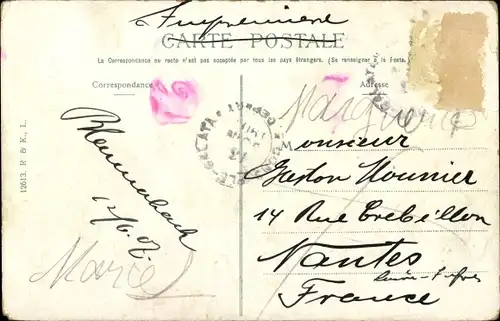 Imprimé
CARTE POSTALE
La Correspondance au recto n'est pas acceptée par tous les pays étrangers. (Se renseigner à la Poste.)
Correspondance
Adresse
12613. R & K., L.
Blumenbach
12/6.07.
Marie
Marguerite
Monsieur
Gaston Mounier
14 Rue Crébillon
Nantes
France